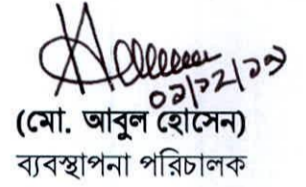 ০১/১২/১৯
(মো. আবুল হোসেন)
ব্যবস্থাপনা পরিচালক